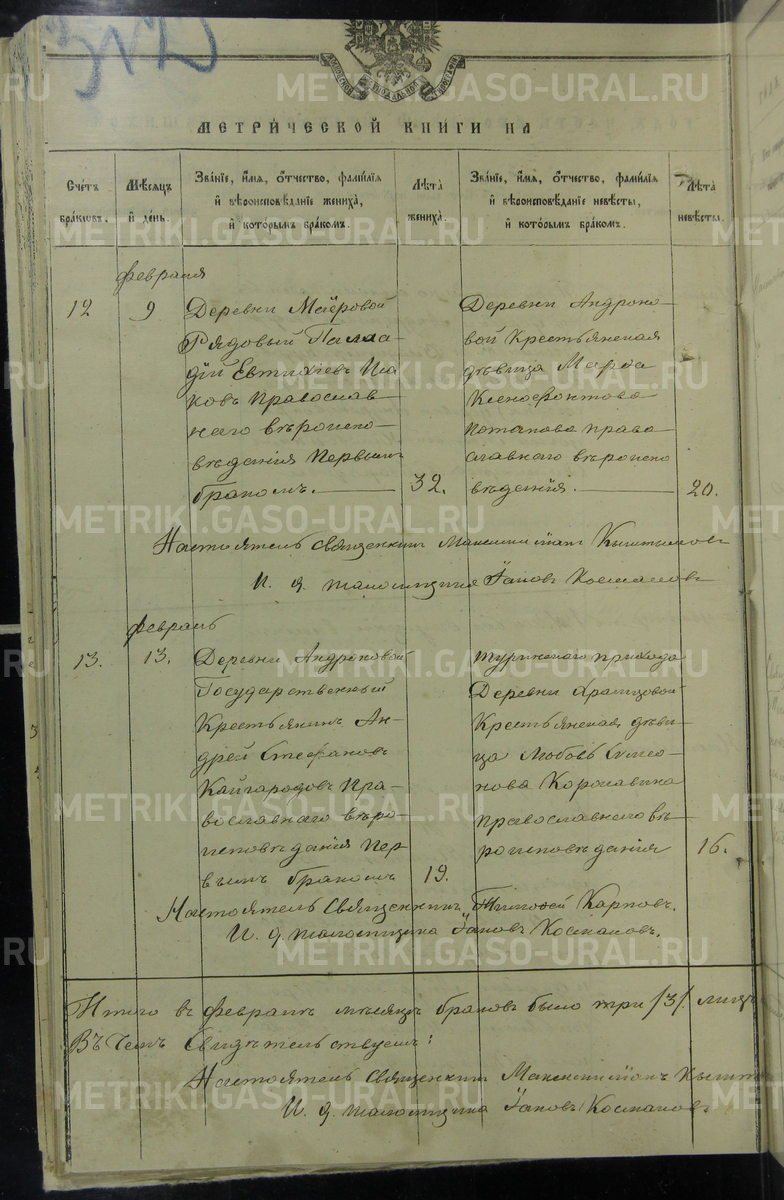 312
МОСКОВСКОЙ СѴНОДАЛЬНОЙ ТИПОГРАФІИ
МЕТРИ́ЧЕСКОЙ КНИГИ НА
Сче́тъ бра́ковъ.
Мѣ́сяцъ и҆ де́нь.
Зва́нїе, и҆́мя, ѻ҆́тчество, фами́лїя
и҆ вѣроисповѣ́данїе жениха̀,
и҆ кото́рымъ бра́комъ.
Лѣ́та жениха̀.
Зва́нїе, и҆́мя, ѻ҆́тчество, фами́лїя
и҆ вѣроисповѣ́данїе невѣ́сты,
и҆ кото́рымъ бра́комъ.
Лѣ́та невѣ́сты.
Февраля
12 9
Деревни Маёровой
Рядовый Палла-
дій Евтихіевъ Иса
ковъ Православ
наго вѣроиспо-
вѣданія Первымъ
бракомъ. 32.
Деревни Андроно-
вой Крестьянская
дѣвица Марѳа
Ксенофонтова
Потапова право
славнаго вѣроиспо
вѣданія. 20.
Настоятель Священникъ Максимиліанъ Кыштымовъ
И. д. псаломщика Іаковъ Космаковъ
Февраль
13. 13.
Деревни Андроновой
Государственный
Крестьянинъ Ан-
дрей Стефановъ
Кайгородовъ Пра-
вославнаго вѣро-
исповѣданія Пер
вымъ бракомъ 19.
Туринскаго прихода
Деревни Храмцовой
Крестьянская дѣви-
ца Любовь Симео-
нова Коркавина
Православнаго вѣ
роисповѣданія 16.
Настоятель Священникъ Тимоѳей Карповъ.
И. д. псаломщика Іаковъ Космаковъ.
Итого въ февралѣ мѣсяцѣ браковъ было три /3/.
Въ чемъ Свидѣтельствуемъ:
Настоятель Священникъ Максимиліанъ Кышты
И. д. псаломщика Іаковъ Космаковъ
METRIKI.GASO-URAL.RU